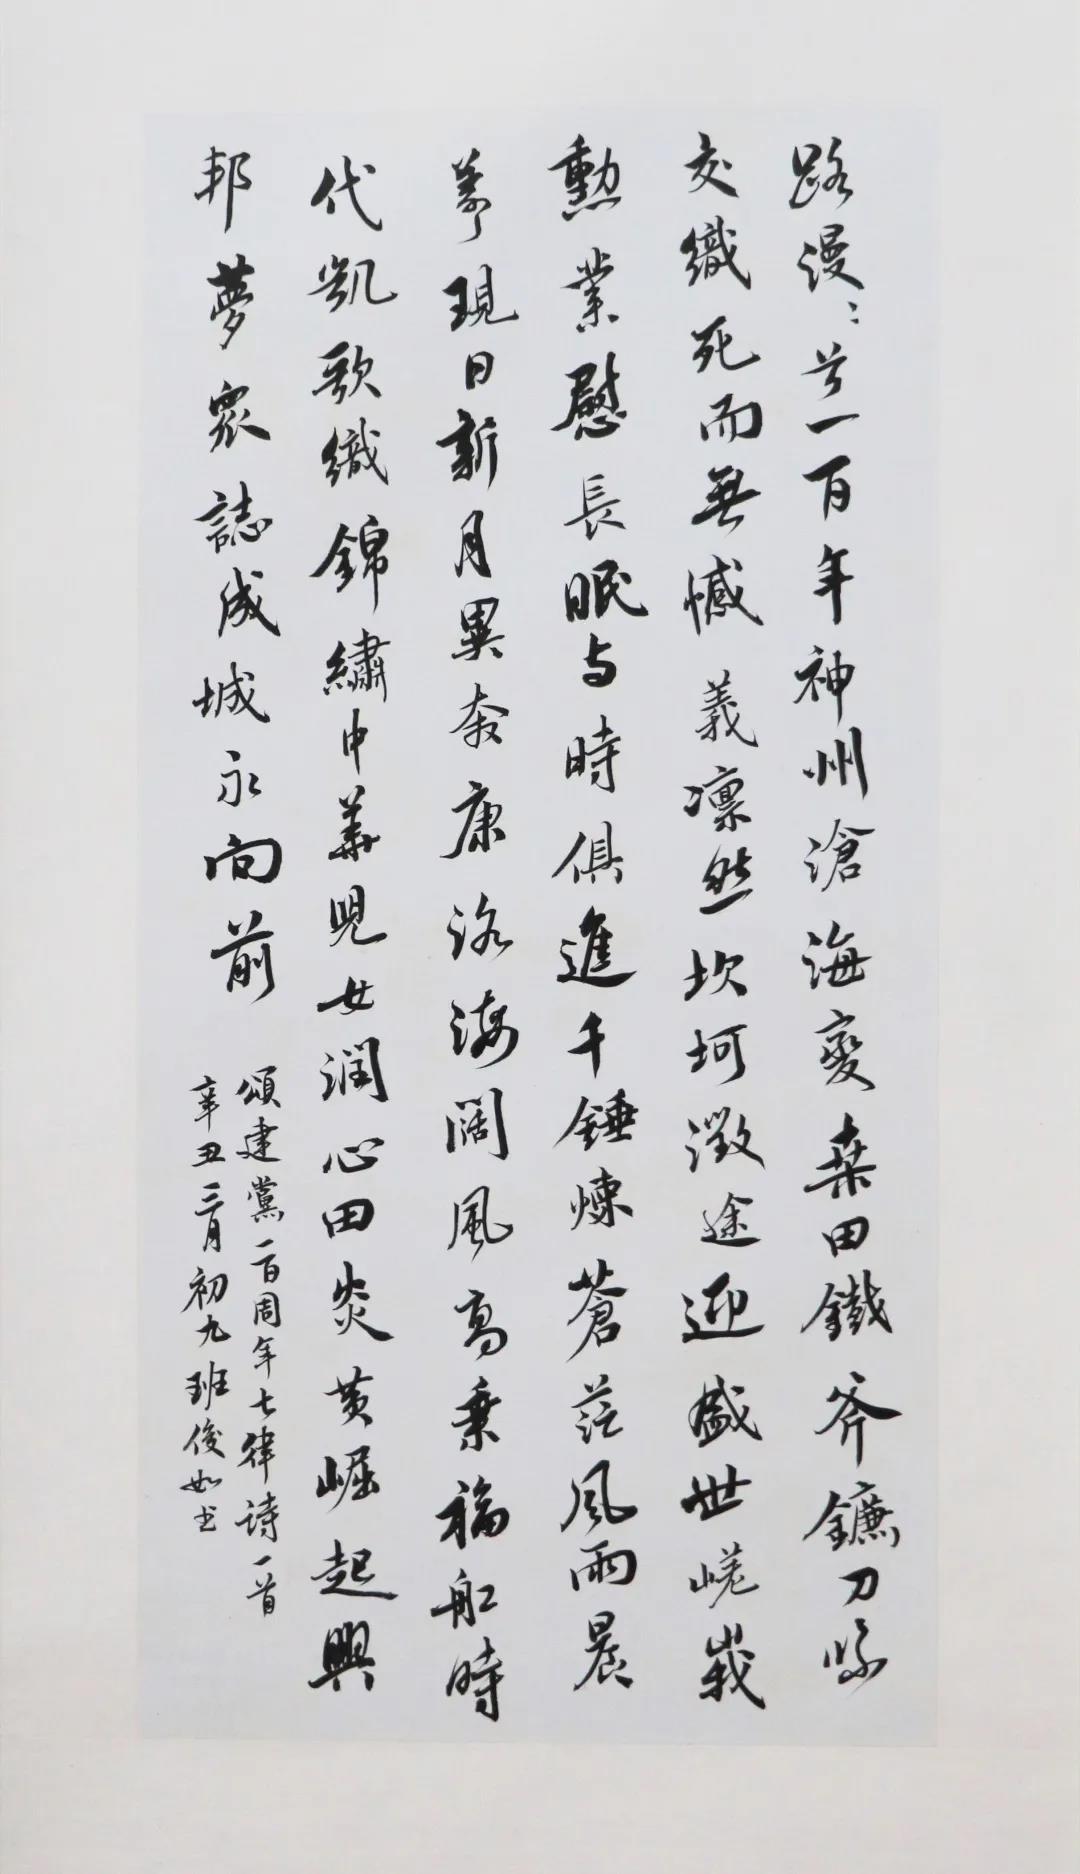 路漫〻兮一百年神州滄海變桑田鐵斧鐮刀
交織死而無憾義凛然坎坷徵途迎盛世嵯峨
勳業慰長眠与時俱進千錘煉蒼茫風雨晨
現日新月異奔康路海闊風高乘福船時
代凱歌織錦繡中華兒女潤心田炎黃崛起興
邦夢眾誌成城永向前
頌建黨一百周年七律詩一首
辛丑三月初九班俊如书